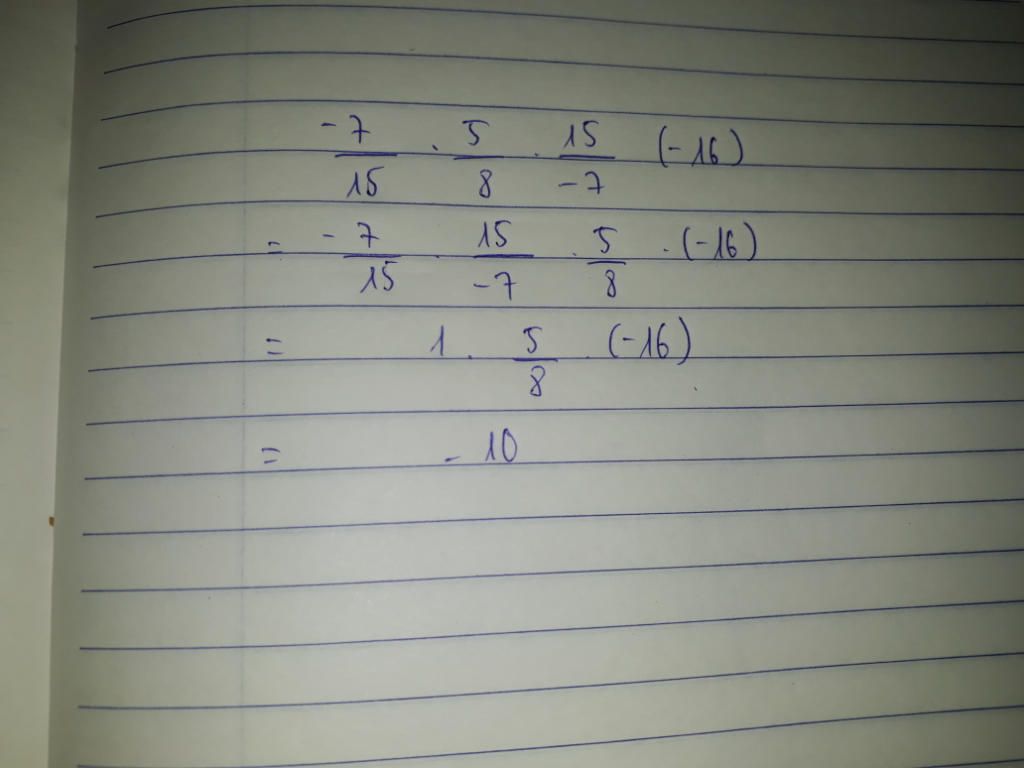 -7/15 . 5/8 . 15/-7 (-16)
= -7/15 . 15/-7 . 5/8 . (-16)
= 1 . 5/8 . (-16)
= - 10